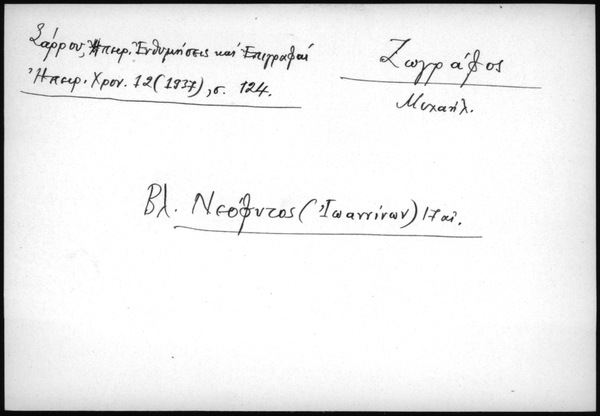 Σάρρου, Ἠπειρ. Ἐνθυμήσεις καὶ Ἐπιγραφαὶ
Ἠπειρ. Χρον. 12 (1937), σ. 124.
Ζωγράφος
Μιχαήλ.
Βλ. Νεόφυτος (Ἰωαννίνων) 17 αἰ.